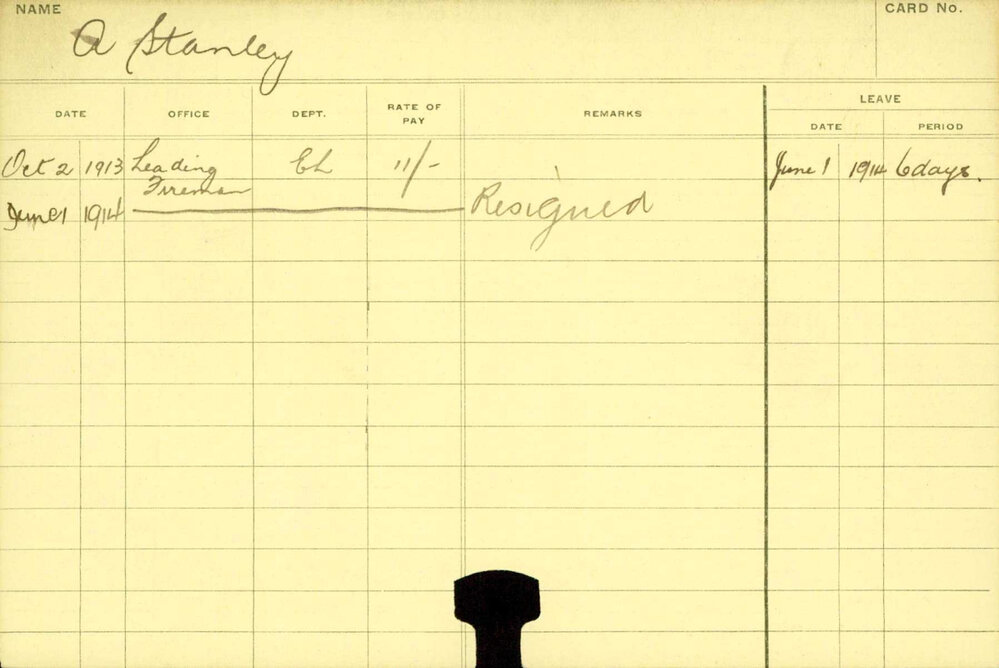 NAME
A Stanley
CARD No.
DATE OFFICE DEPT. RATE OF PAY REMARKS LEAVE
DATE PERIOD
Oct 2 1913 Leading Fireman EL 11/- June 1 1914 6 days.
June 1 1914 Resigned